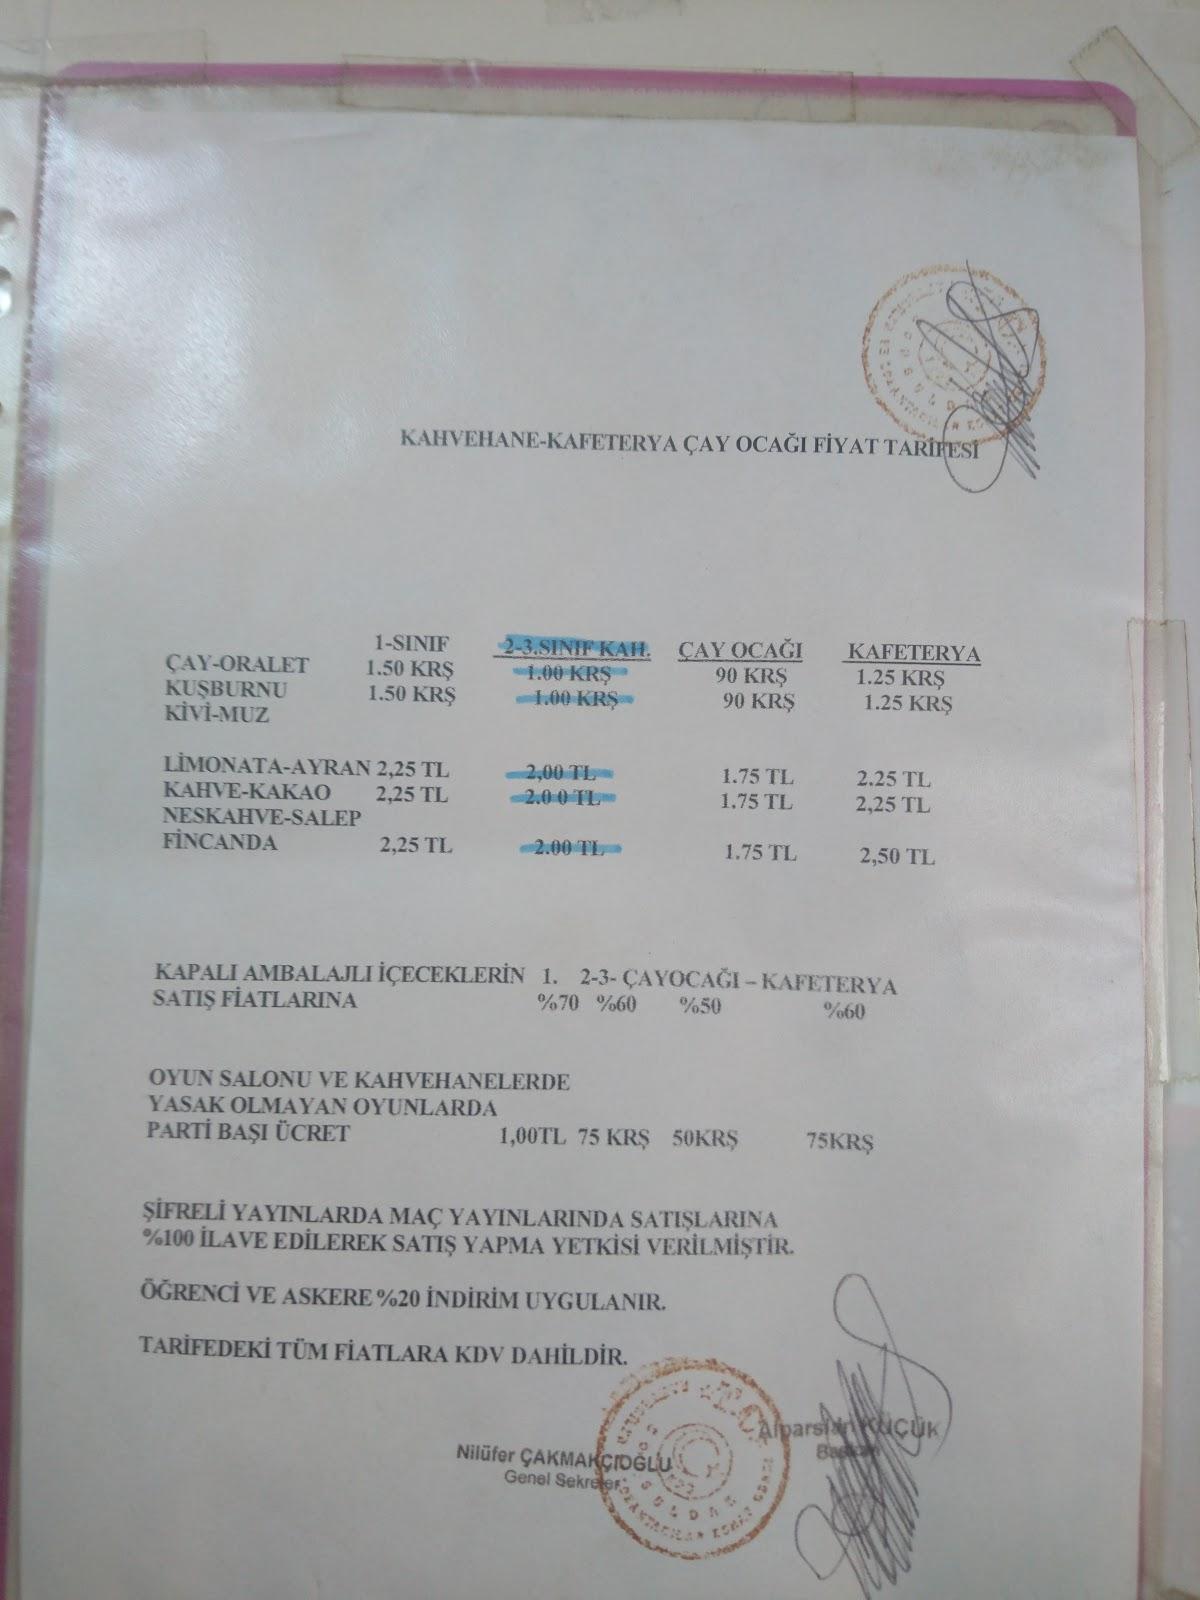 KAHVEHANE-KAFETERYA ÇAY OCAĞI FİYAT TARİFESİ
1-SINIF 2-3.SINIF KAH. ÇAY OCAĞI KAFETERYA
ÇAY-ORALET 1.50 KRŞ 1.00 KRŞ 90 KRŞ 1.25 KRŞ
KUŞBURNU 1.50 KRŞ 1.00 KRŞ 90 KRŞ 1.25 KRŞ
KİVİ-MUZ
LİMONATA-AYRAN 2,25 TL 2,00 TL 1.75 TL 2.25 TL
KAHVE-KAKAO 2,25 TL 2.0 0 TL 1.75 TL 2,25 TL
NESKAHVE-SALEP
FİNCANDA 2,25 TL 2.00 TL 1.75 TL 2,50 TL
KAPALI AMBALAJLI İÇECEKLERİN 1. 2-3- ÇAYOCAĞI – KAFETERYA
SATIŞ FİATLARINA %70 %60 %50 %60
OYUN SALONU VE KAHVEHANELERDE
YASAK OLMAYAN OYUNLARDA
PARTİ BAŞI ÜCRET 1,00TL 75 KRŞ 50KRŞ 75KRŞ
ŞİFRELİ YAYINLARDA MAÇ YAYINLARINDA SATIŞLARINA
%100 İLAVE EDİLEREK SATIŞ YAPMA YETKİSİ VERİLMİŞTİR.
ÖĞRENCİ VE ASKERE %20 İNDİRİM UYGULANIR.
TARİFEDEKİ TÜM FİATLARA KDV DAHİLDİR.
Alparslan KÜÇÜK
Başkan
Nilüfer ÇAKMAKÇIOĞLU
Genel Sekreter